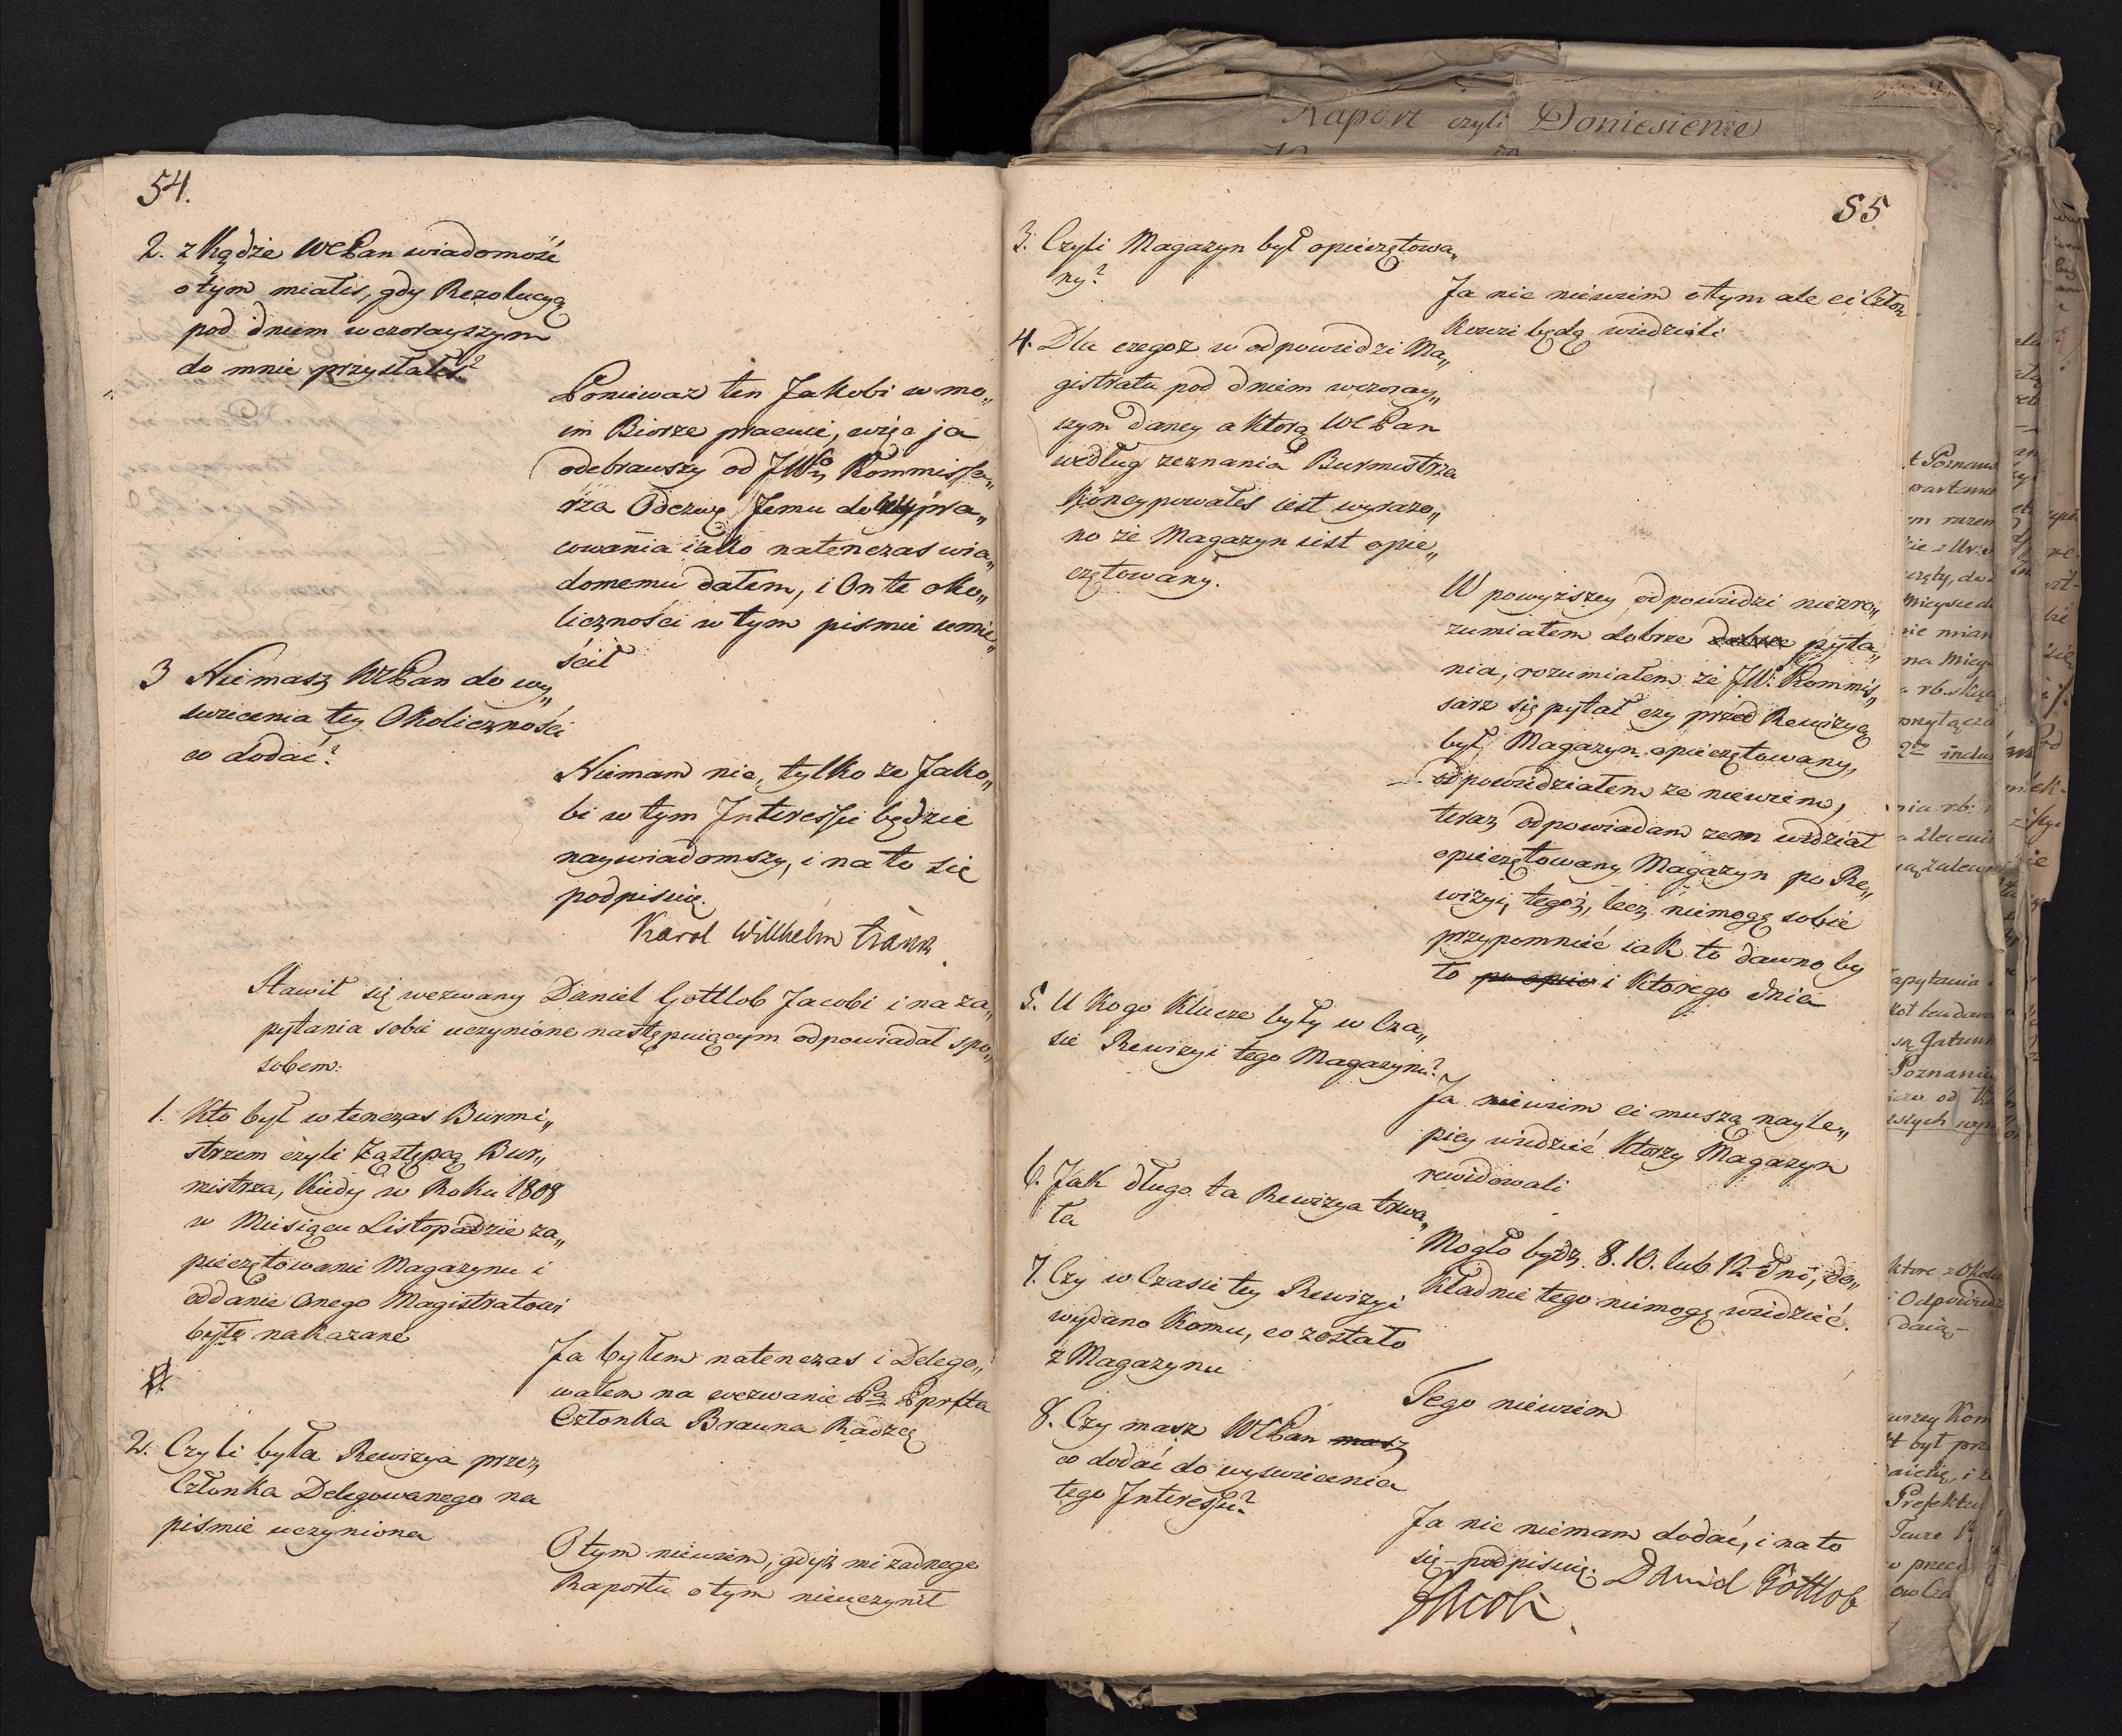 Raport czyli Doniesienie
54.
2. z Kądże WCPan wiadomość
o tym miałeś, gdy Rezolucyą
pod dniem wczorayszym
do mnie przysłałeś?
Ponieważ ten Jakobi w mo„
im Biorze pracuie, więc ja
odebrawszy od JWgo Kommissa„
rza Odezwę Jemu do wypra„
cowania iako natenczas wia„
domemu dałem, i On te oko„
liczności w tym piśmie umie„
ścił
3 Niemasz WCPan do wy„
świecenia tey Okoliczności
co dodać?
Niemam nic, tylko że Jako„
bi w tym Interessie będzie
naywiadomszy, i na to się
podpisuię.
Karol Wilhelm
Stawił się wezwany Daniel Gottlob Jacobi i na za„
pytania sobie uczynione następuiącym odpowiadał spo„
sobem:
1. Kto był w tenczas Burmi„
strzem czyli Zastępcą Bur„
mistrza, kiedy w Roku 1808
w Miesiącu Listopadzie za„
pieczętowanie Magazynu i
oddanie onego Magistratowi
było nakazane
Ja byłem natenczas i Delego„
wałem na wezwanie Pa Pprfta
Członka Brauna Radzcę
2. Czyli była Rewizya przez
Członka Delegowanego na
piśmie uczyniona
O tym niewiem, gdyż mi żadnego
Raportu o tym nieuczynił
55
3. Czyli Magazyn był opieczętowa„
ny?
Ja nic niewiem o tym ale ci Człon„
kowie będą wiedzieli
4. Dla czegoż w odpowiedzi Ma„
gistratu pod dniem wczoray„
szym daney a którą WCPan
według zeznania Burmistrza
koncypowałeś iest wyrażo„
no że Magazyn iest opie„
czętowany.
W powyższey odpowiedzi niezro„
zumiałem dobrze dobrze pyta„
nia, rozumiałem że JW. Kommis„
sarz się pytał czy przed Rewizyą
był Magazyn opieczętowany,
odpowiedziałem że niewiem,
teraz odpowiadam żem widział
opieczętowany Magazyn po Re„
wizyi, tegoż, lecz niemogę sobie
przypomnieć iak to dawno by
ło po opie i którego dnia
5. U Kogo Klucze były w Cza„
sie Rewizyi tego Magazynu?
Ja niewiem ci muszą nayle„
piey wiedzieć którzy Magazyn
rewidowali
6. Jak długo ta Rewizya trwa„
ła
Mogło bydź 8. 10. lub 12 dni, do„
kładnie tego niemogę wiedzieć.
7. Czy w Czasie tey Rewizyi
wydano komu, co zostało
z Magazynu
Tego niewiem
8. Czy masz WCPan masz
co dodać do wyświecenia
tego Interessu?
Ja nic niemam dodać, i na to
się podpisuię. Daniel Gottlob
Jacobi.